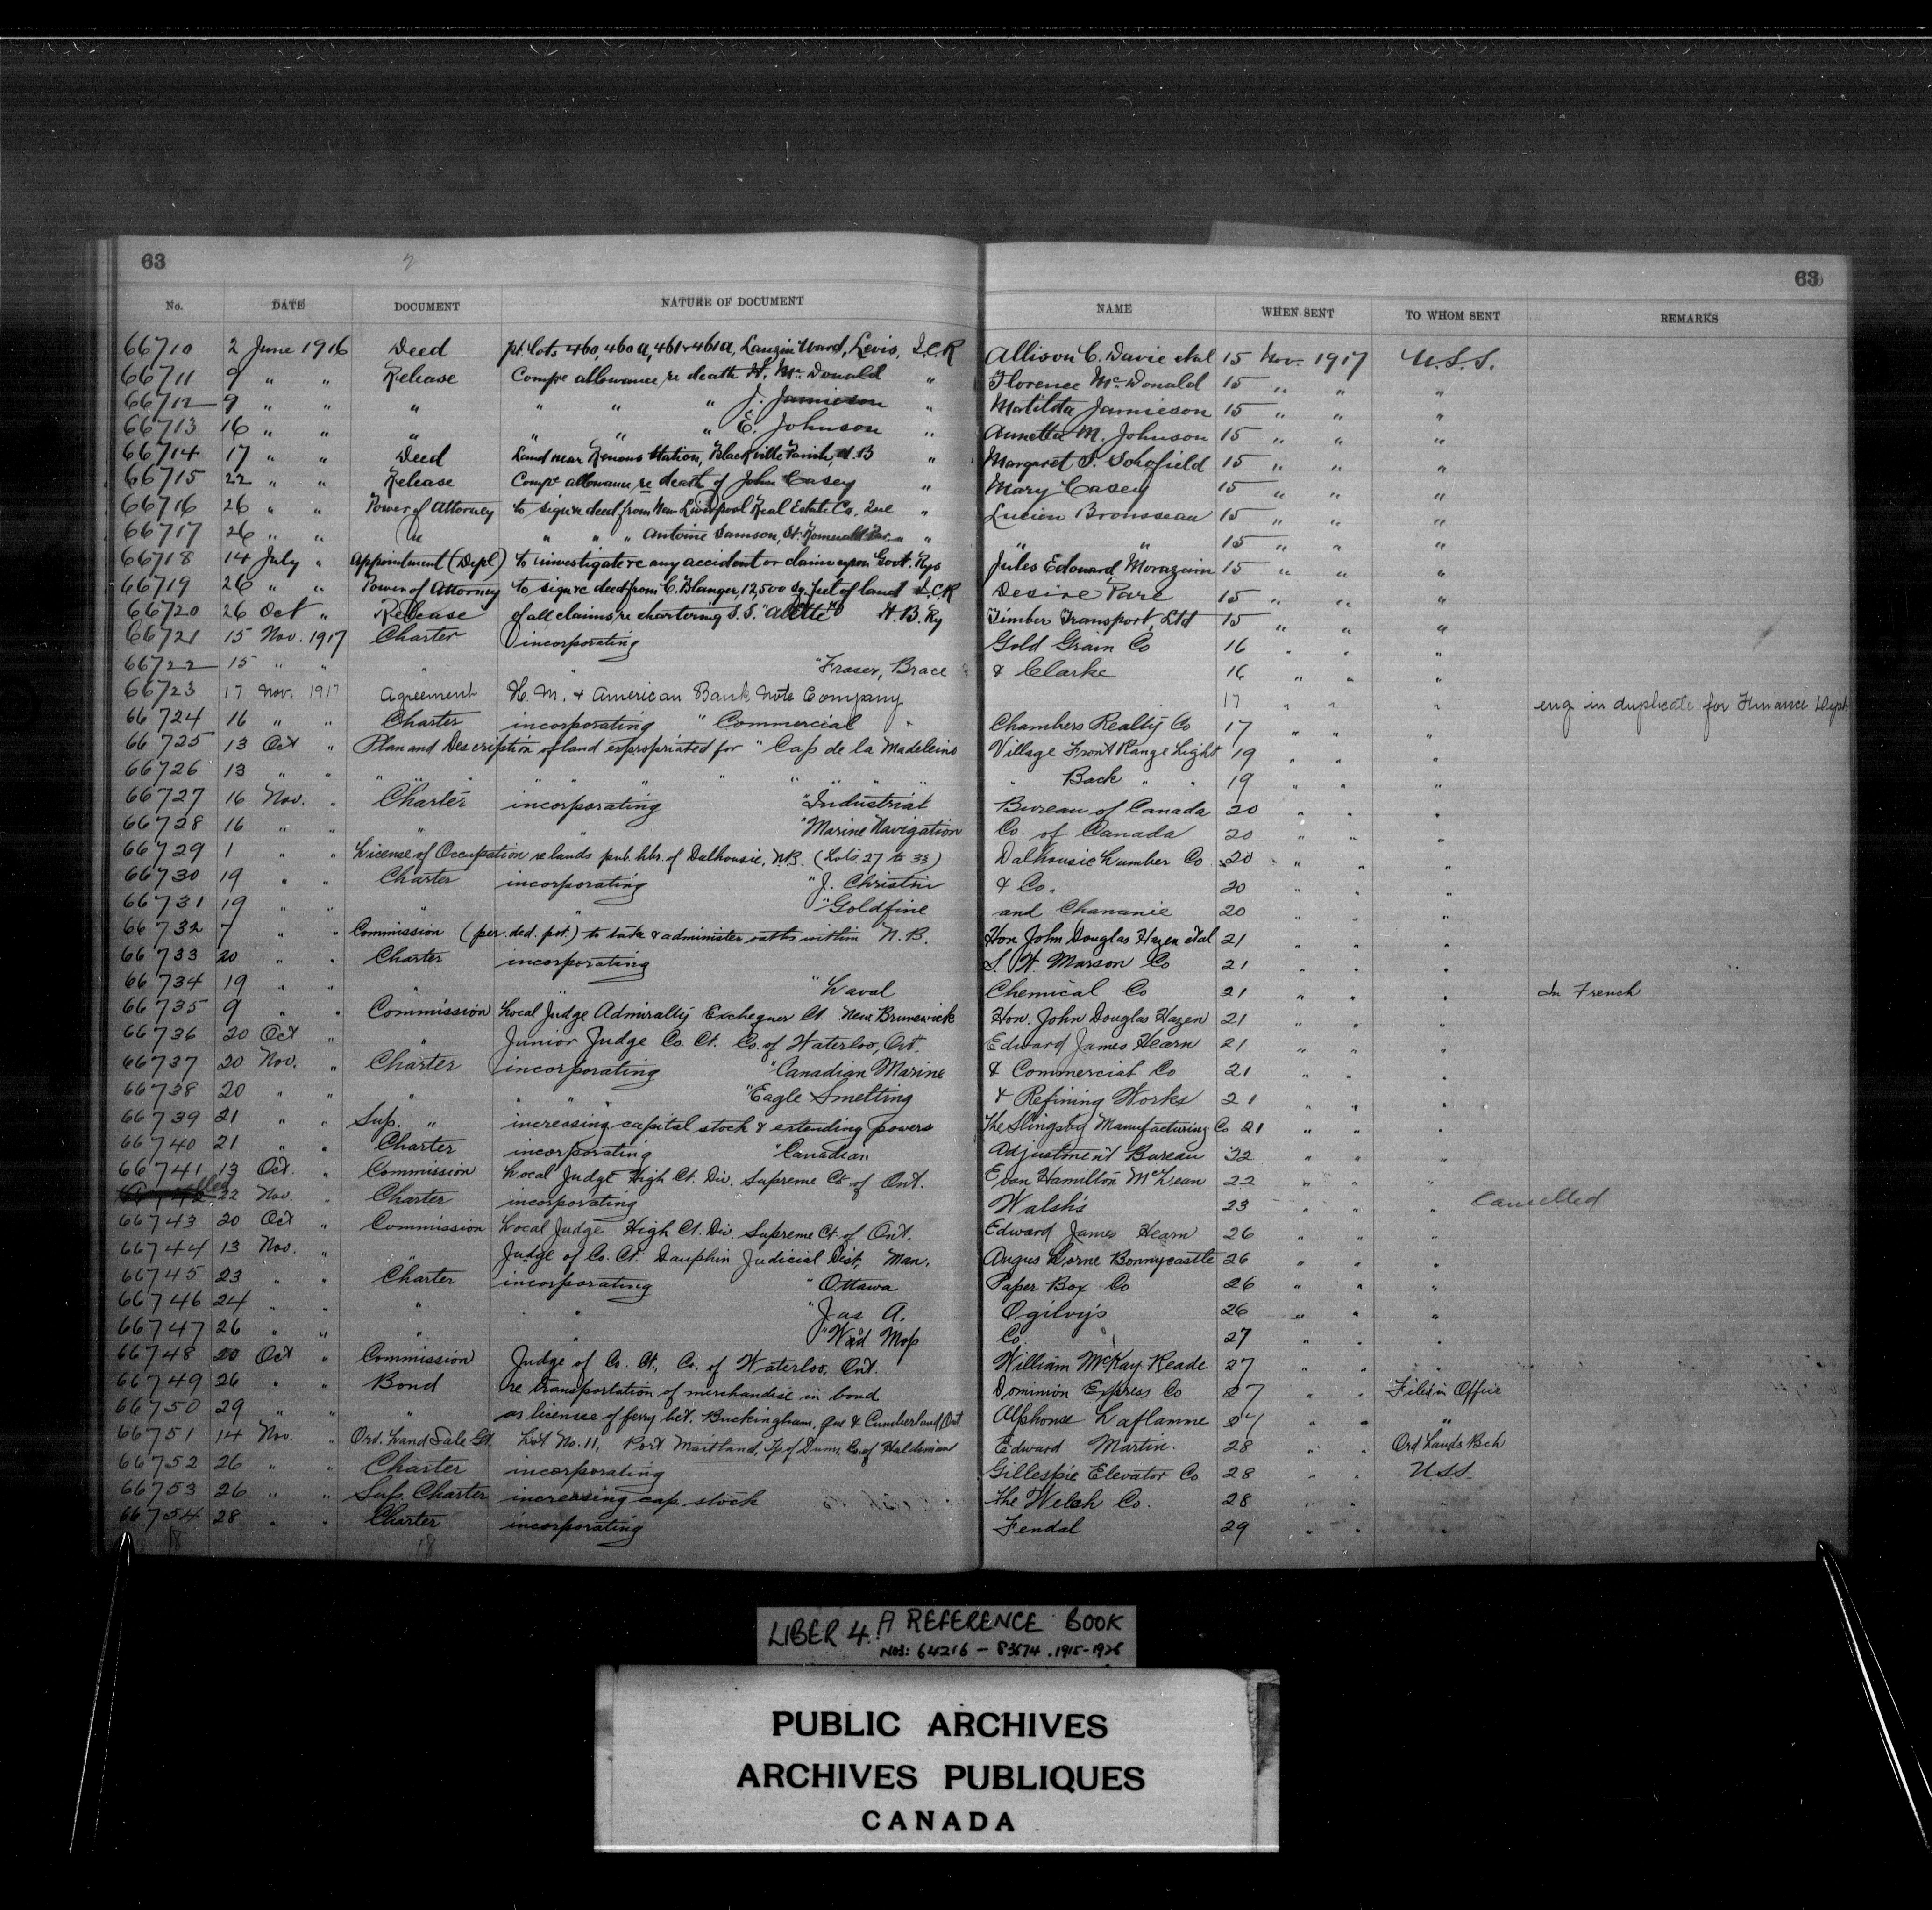 63 2 63
No. DATE DOCUMENT NATURE OF DOCUMENT NAME WHEN SENT TO WHOM SENT REMARKS
66710 2 June 1916 Deed pt. lots 460, 460a, 461 & 461a, Lauzin Ward, Levis, I.C.R Allison C. Davie et al 15 Nov. 1917 U.S.S.
66711 9 " " Release Compre allowance re death H. McDonald " Florence McDonald 15 " " "
66712 9 " " " " " " J. Jamieson " Matilda Jamieson 15 " " "
66713 16 " " " " " " E. Johnson " Annetta M. Johnson 15 " " "
66714 17 " " Deed Land near Renous Station, Blackville Parish, N.B " Margaret S. Schofield 15 " " "
66715 22 " " Release Compe allowance re death of John Casey " Mary Casey 15 " " "
66716 26 " " Power of Attorney to sign re deed from New Liverpool Real Estate Co. Que " Lucien Brousseau 15 " " "
66717 26 " " " " " " Antoine Samson, St. Romuald " " " 15 " " "
66718 14 July " Appointment (Depl) to investigate re any accident or claim upon Govt. Rys Jules Edouard Morazain 15 " " "
66719 26 " " Power of Attorney to sign re deed from C. Blanger, 12,500 sq. feet of land I.C.R Desire Pare 15 " " "
66720 26 Oct " Release of all claims re chartering S.S. "Alette" H.B. Ry Timber Transport, Ltd 15 " " "
66721 15 Nov. 1917 Charter incorporating Gold Grain Co 16 " " "
66722 15 " " " " "Fraser, Brace & Clarke 16 " " "
66723 17 Nov. 1917 Agreement H.M. & American Bank Note Company 17 " " " eng. in duplicate for Finance Dept
66724 16 " " Charter incorporating "Commercial " Chambers Realty Co 17 " " "
66725 13 Oct " Plan and Description of land expropriated for "Cap de la Madeleine Village Front Range Light 19 " " "
66726 13 " " " " " " " " " " " Back " " 19 " " "
66727 16 Nov. " Charter incorporating "Industrial Bureau of Canada 20 " " "
66728 16 " " " " "Marine Navigation Co. of Canada 20 " " "
66729 1 " " License of Occupation re lands pub. hbr. of Dalhousie, N.B. (Lots 27 to 33) Dalhousie Lumber Co 20 " " "
66730 19 " " Charter incorporating "J. Christin & Co. 20 " " "
66731 19 " " " " "Goldfine and Chananie 20 " " "
66732 7 " " Commission (per. ded. pot.) to take & administer oaths within N.B. Hon John Douglas Hazen et al 21 " " "
66733 20 " " Charter incorporating S. W. Marson Co 21 " " "
66734 19 " " " " "Laval Chemical Co 21 " " " In French
66735 9 " " Commission Local Judge Admiralty Exchequer Ct. New Brunswick Hon. John Douglas Hazen 21 " " "
66736 20 Oct " " Junior Judge Co. Ct. Co. of Waterloo, Ont. Edward James Hearn 21 " " "
66737 20 Nov. " Charter incorporating "Canadian Marine & Commercial Co 21 " " "
66738 20 " " " " "Eagle Smelting & Refining Works 21 " " "
66739 21 " " Sup. " increasing capital stock & extending powers The Slingsby Manufacturing Co 21 " " "
66740 21 " " Charter incorporating "Canadian Adjustment Bureau 22 " " "
66741 13 Oct. " Commission Local Judge High Ct. Div. Supreme Ct. of Ont. Evan Hamilton McLean 22 " " "
22 Nov. " Charter incorporating Walsh's 23 " " " Cancelled
66743 20 Oct " Commission Local Judge High Ct. Div. Supreme Ct. of Ont. Edward James Hearn 26 " " "
66744 13 Nov. " " Judge of Co. Ct. Dauphin Judicial Dist, Man. Angus Lorne Bonnycastle 26 " " "
66745 23 " " Charter incorporating "Ottawa Paper Box Co 26 " " "
66746 24 " " " " "Jas A. Ogilvy's 26 " " "
66747 26 " " " " Mop Co 27 " " "
66748 20 Oct " Commission Judge of Co. Ct. Co. of Waterloo, Ont. William McKay Reade 27 " " "
66749 26 " " Bond re transportation of merchandise in bond Dominion Express Co 27 " " Filed in Office
66750 29 " " " as licensee of ferry bet. Buckingham, Que & Cumberland, Ont. Alphonse Laflamme 27 " " "
66751 14 Nov. " Ord. Land Sale Gt. Lot No. 11, Port Maitland, Tp of Dunn, Co. of Haldimand Edward Martin. 28 " " Ord Lands Bch
66752 26 " " Charter incorporating Gillespie Elevator Co 28 " " U.S.S.
66753 26 " " Sup. Charter increasing cap. stock The Welsh Co. 28 " " "
66754 28 " " Charter incorporating Fendal 29 " " "
18 18
LIBER 4. A REFERENCE BOOK
NOS: 64216 - 83674. 1915-1926
PUBLIC ARCHIVES
ARCHIVES PUBLIQUES
CANADA